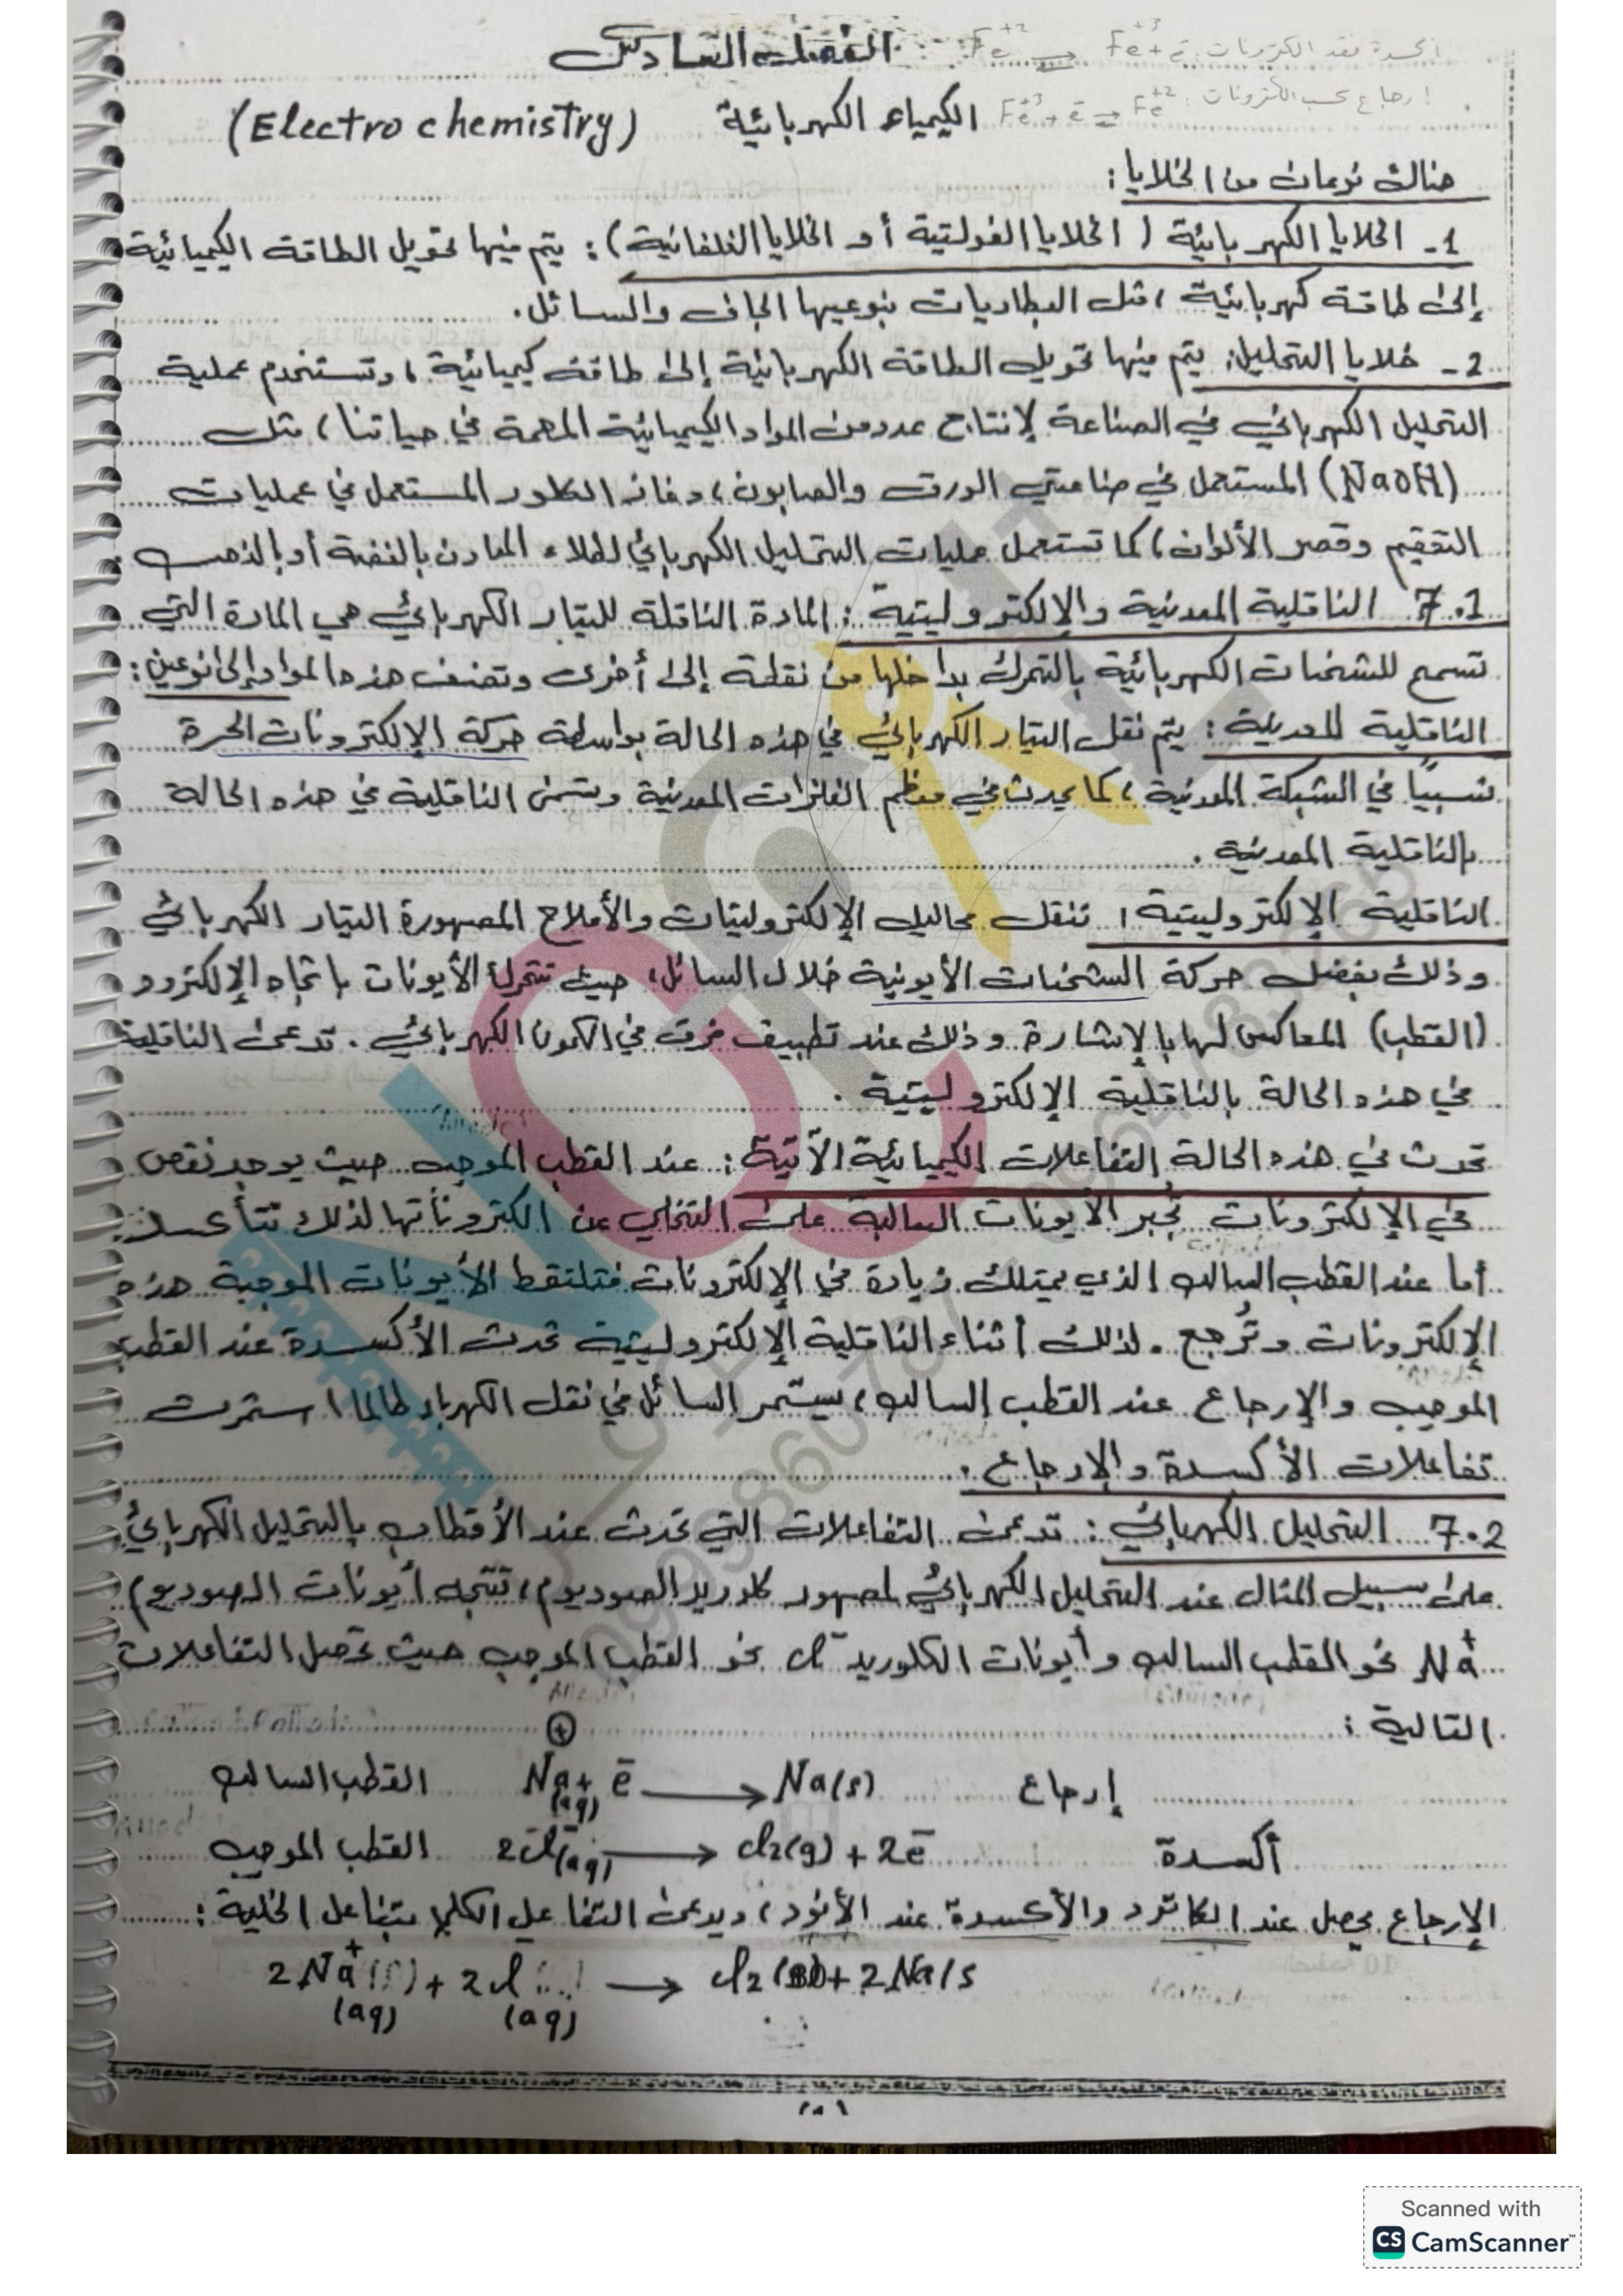 الفصل السادس
أكسدة فقد الكترونات: Fe+2 ⇌ Fe+3 + e-
إرجاع كسب الكترونات: Fe+3 + e- ⇌ Fe+2
الكيمياء الكهربائية (Electro chemistry)
هناك نوعان من الخلايا:
1- الخلايا الكهربائية (الخلايا الفولتية أو الخلايا الغلفانية): يتم فيها تحويل الطاقة الكيميائية
إلى طاقة كهربائية، مثل البطاريات بنوعيها الجاف والسائل.
2- خلايا التحليل: يتم فيها تحويل الطاقة الكهربائية إلى طاقة كيميائية، وتستخدم عملية
التحليل الكهربائي في الصناعة لإنتاج عدد من المواد الكيميائية المهمة في حياتنا، مثل
(NaOH) المستعمل في صناعتي الورق والصابون، وغاز الكلور المستعمل في عمليات
التعقيم وقصر الألوان، كما تستعمل عمليات التحليل الكهربائي لطلاء المعادن بالفضة أو بالذهب.
7.1 الناقلية المعدنية والإلكتروليتية: المادة الناقلة للتيار الكهربائي هي المادة التي
تسمح للشحنات الكهربائية بالتحرك بداخلها من نقطة إلى أخرى وتصنف هذه المواد إلى نوعين:
الناقلية المعدنية: يتم نقل التيار الكهربائي في هذه الحالة بواسطة حركة الإلكترونات الحرة
نسبيًا في الشبكة المعدنية، كما يحدث في معظم الفلزات المعدنية وتسمى الناقلية في هذه الحالة
بالناقلية المعدنية.
الناقلية الإلكتروليتية: تنقل محاليل الإلكتروليتات والأملاح المصهورة التيار الكهربائي
وذلك بفضل حركة الشحنات الأيونية خلال السائل، حيث تتحرك الأيونات باتجاه الإلكترود
(القطب) المعاكس لها بالإشارة وذلك عند تطبيق فرق في الكمون الكهربائي. تدعى الناقلية
في هذه الحالة بالناقلية الإلكتروليتية.
تحدث في هذه الحالة التفاعلات الكيميائية الآتية: عند القطب الموجب حيث يوجد نقص
في الإلكترونات تُجبر الأيونات السالبة على التخلي عن الكتروناتها لذلك تتأكسد.
أما عند القطب السالب الذي يمتلك زيادة في الإلكترونات فتلتقط الأيونات الموجبة هذه
الإلكترونات وتُرجع. لذلك أثناء الناقلية الإلكتروليتية تحدث الأكسدة عند القطب
الموجب والإرجاع عند القطب السالب، سيستمر السائل في نقل الكهرباء طالما استمرت
تفاعلات الأكسدة والإرجاع.
7.2 التحليل الكهربائي: تدعى التفاعلات التي تحدث عند الأقطاب بالتحليل الكهربائي
على سبيل المثال عند التحليل الكهربائي لمصهور كلوريد الصوديوم، تتجه أيونات الصوديوم)
Na+ نحو القطب السالب وأيونات الكلوريد Cl- نحو القطب الموجب حيث تحصل التفاعلات
التالية:
القطب السالب Na+(aq) + e- → Na(s) إرجاع
القطب الموجب 2Cl-(aq) → Cl2(g) + 2e- أكسدة
الإرجاع يحصل عند الكاثود والأكسدة عند الأنود، ويدعى التفاعل الكلي بتفاعل الخلية:
2Na+(aq) + 2Cl-(aq) → Cl2 + 2Na(s
Scanned with
CS CamScanner